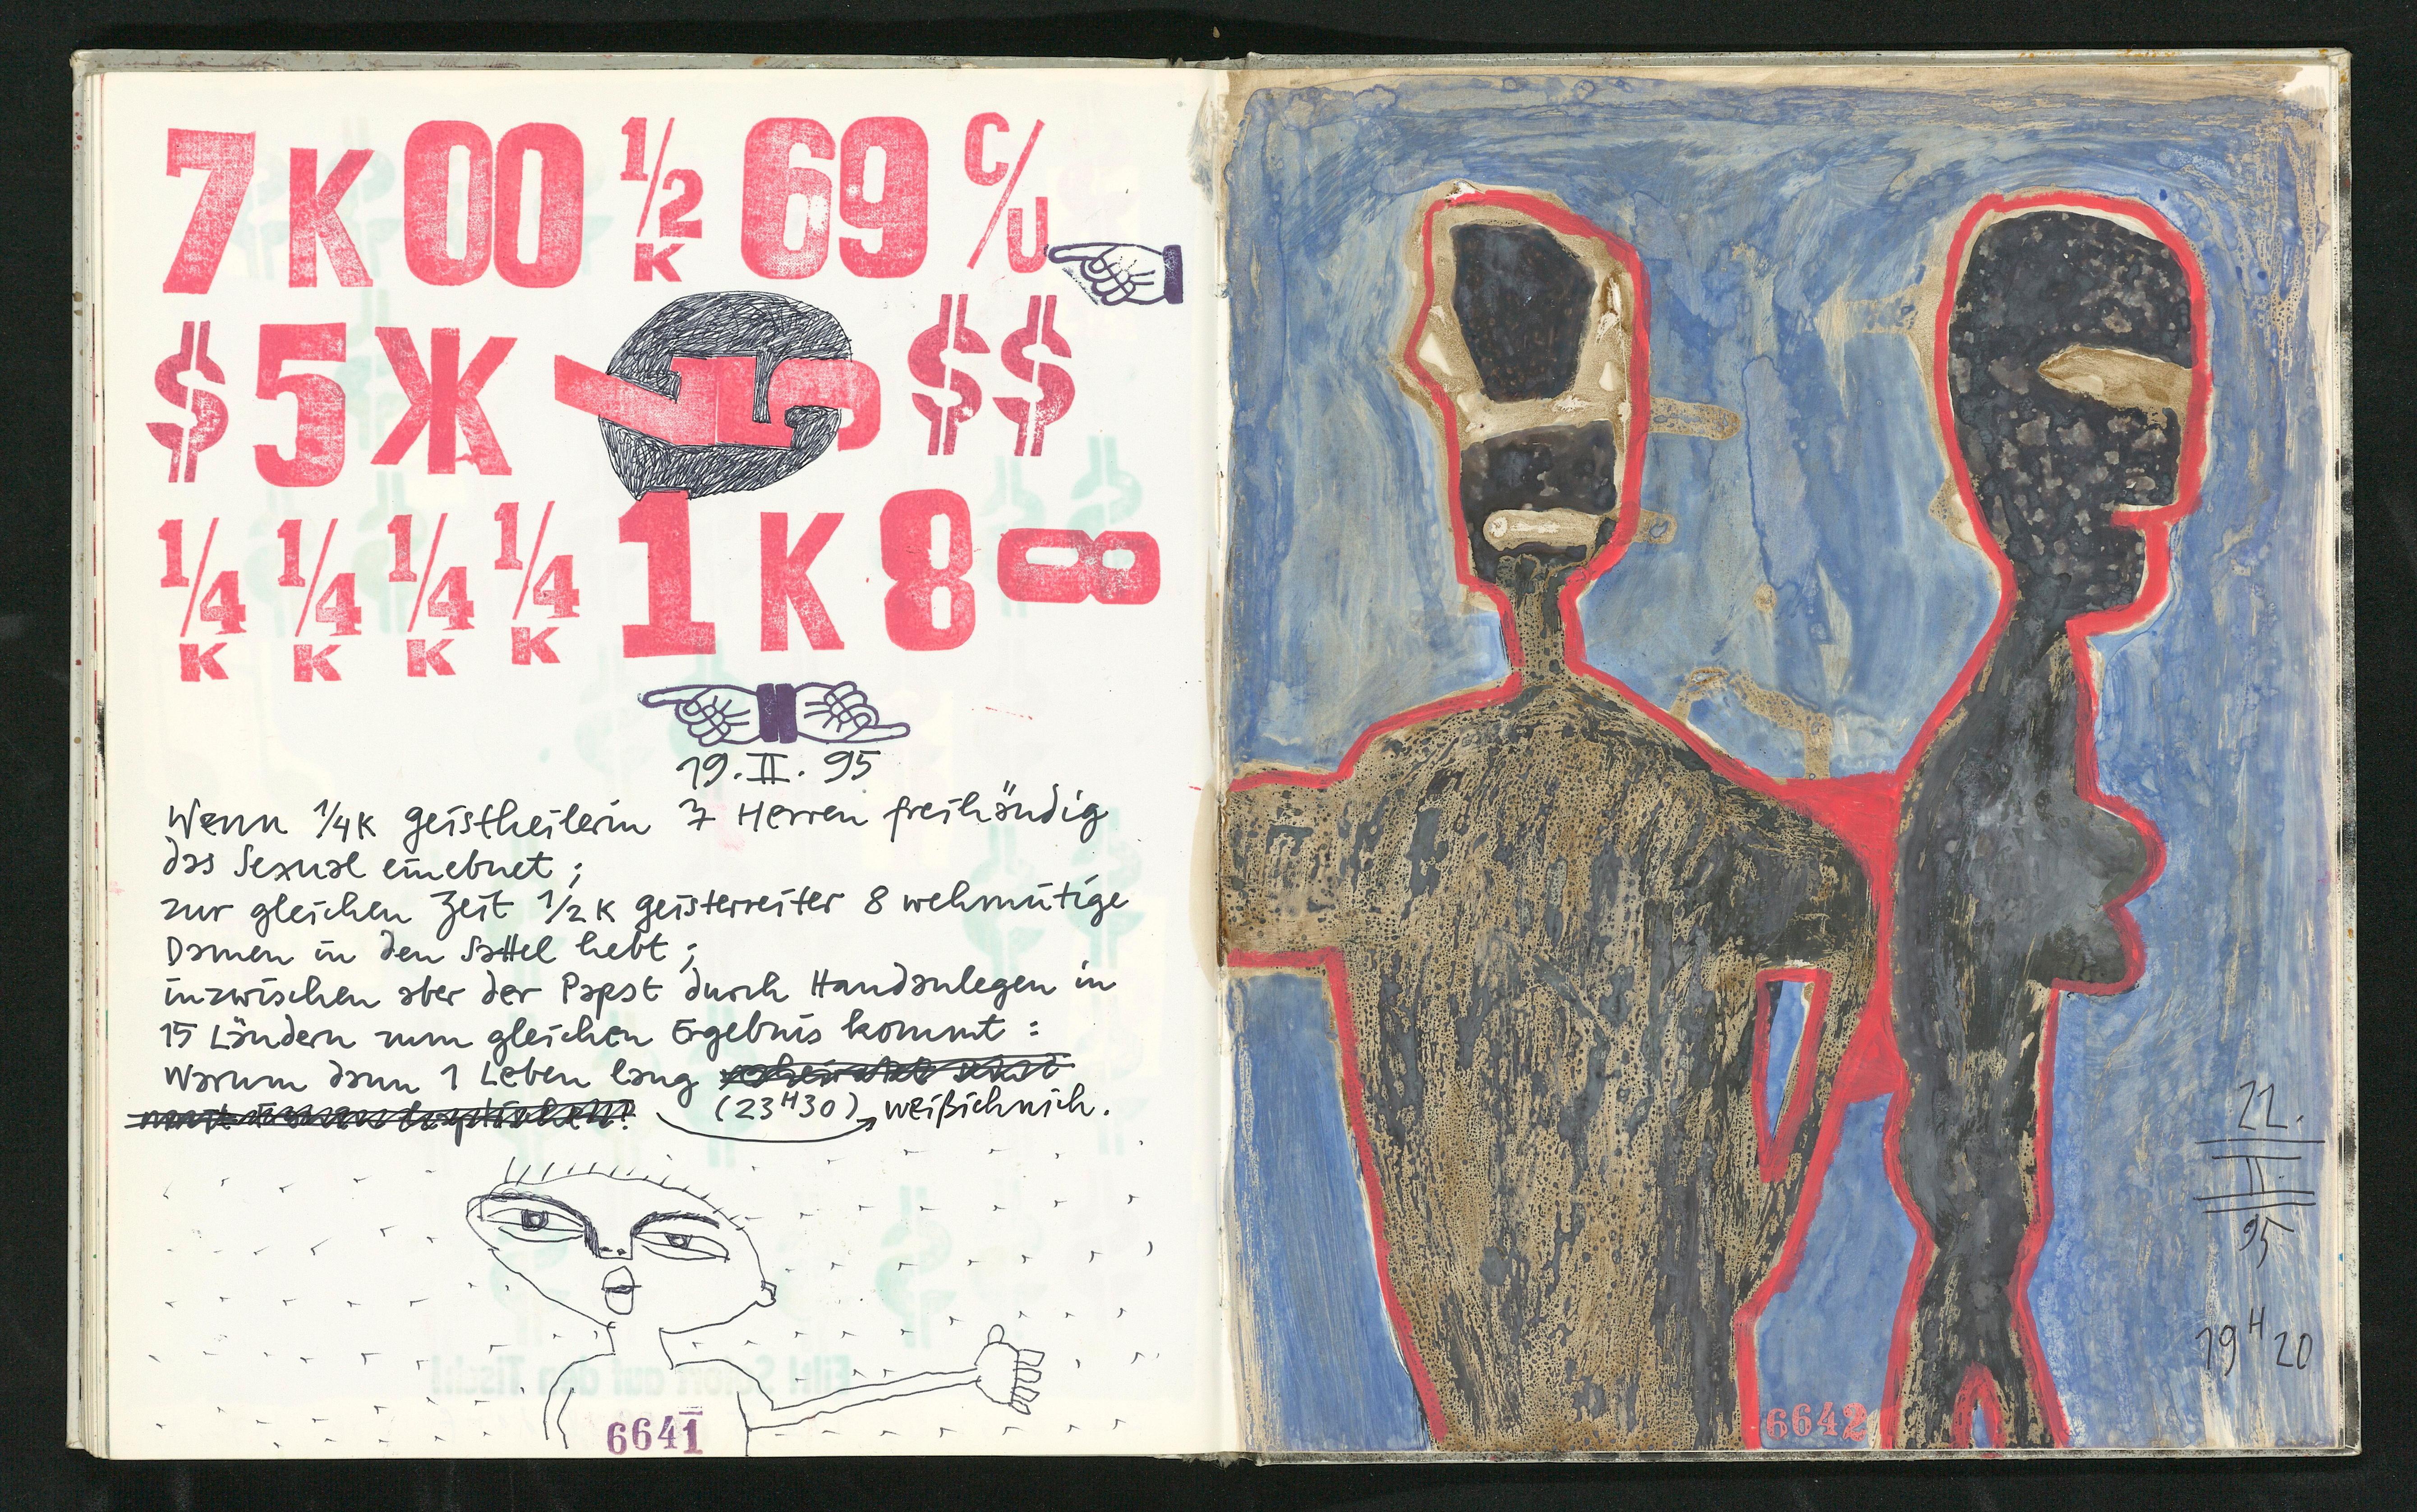 7 K 00 1/2 K 69 C/U
$ 5 Ж 15 $$
1/4 K 1/4 K 1/4 K 1/4 K 1 K 8 8
19. II. 95
Wenn 1/4 K geistheilerin 7 Herren freihändig
das Sexual einebnet ;
zur gleichen Zeit 1/2 K geisterreiter 8 wehmütige
Damen in den Sattel hebt ;
inzwischen aber der Papst durch Handanlegen in
15 Ländern zum gleichen Ergebnis kommt :
Warum dann 1 Leben lang
(23H30) weißichnich.
6641
22.
II.
95
19H20
6642